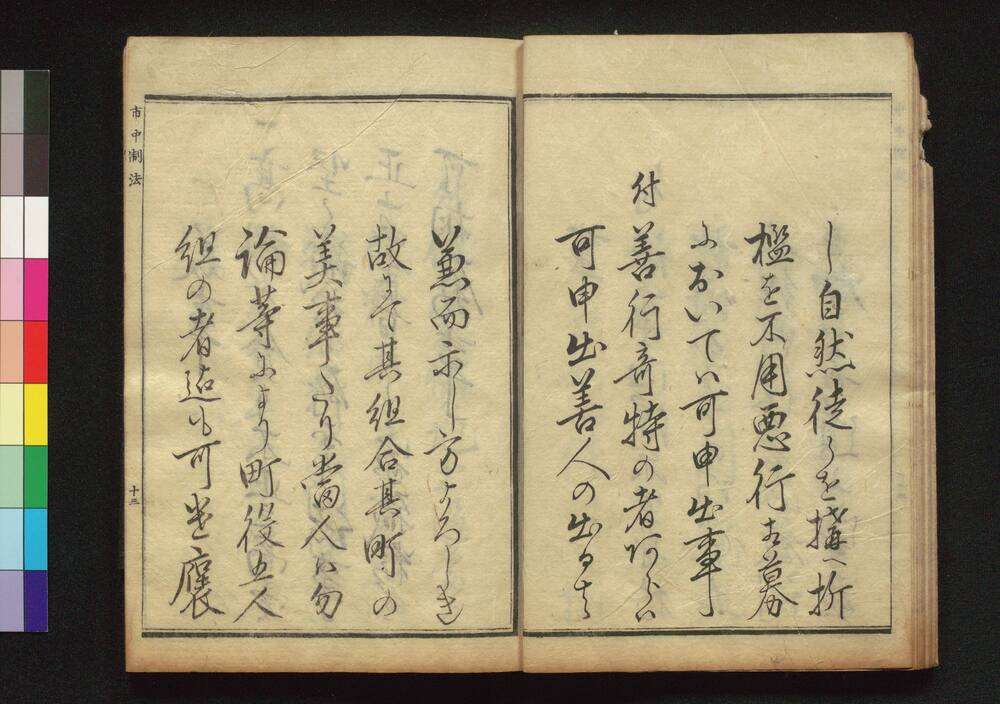 し自然徒らを搆へ折
檻を不用悪行相募
におゐてハ可申出事
付
善行奇特の者あらハ
可申出善人の出るは
兼而示し方よろしき
故にて其組合其町の
美事たり当人ハ勿
論等により町役五人
組の者迄も可遂褒
市中制法
十三